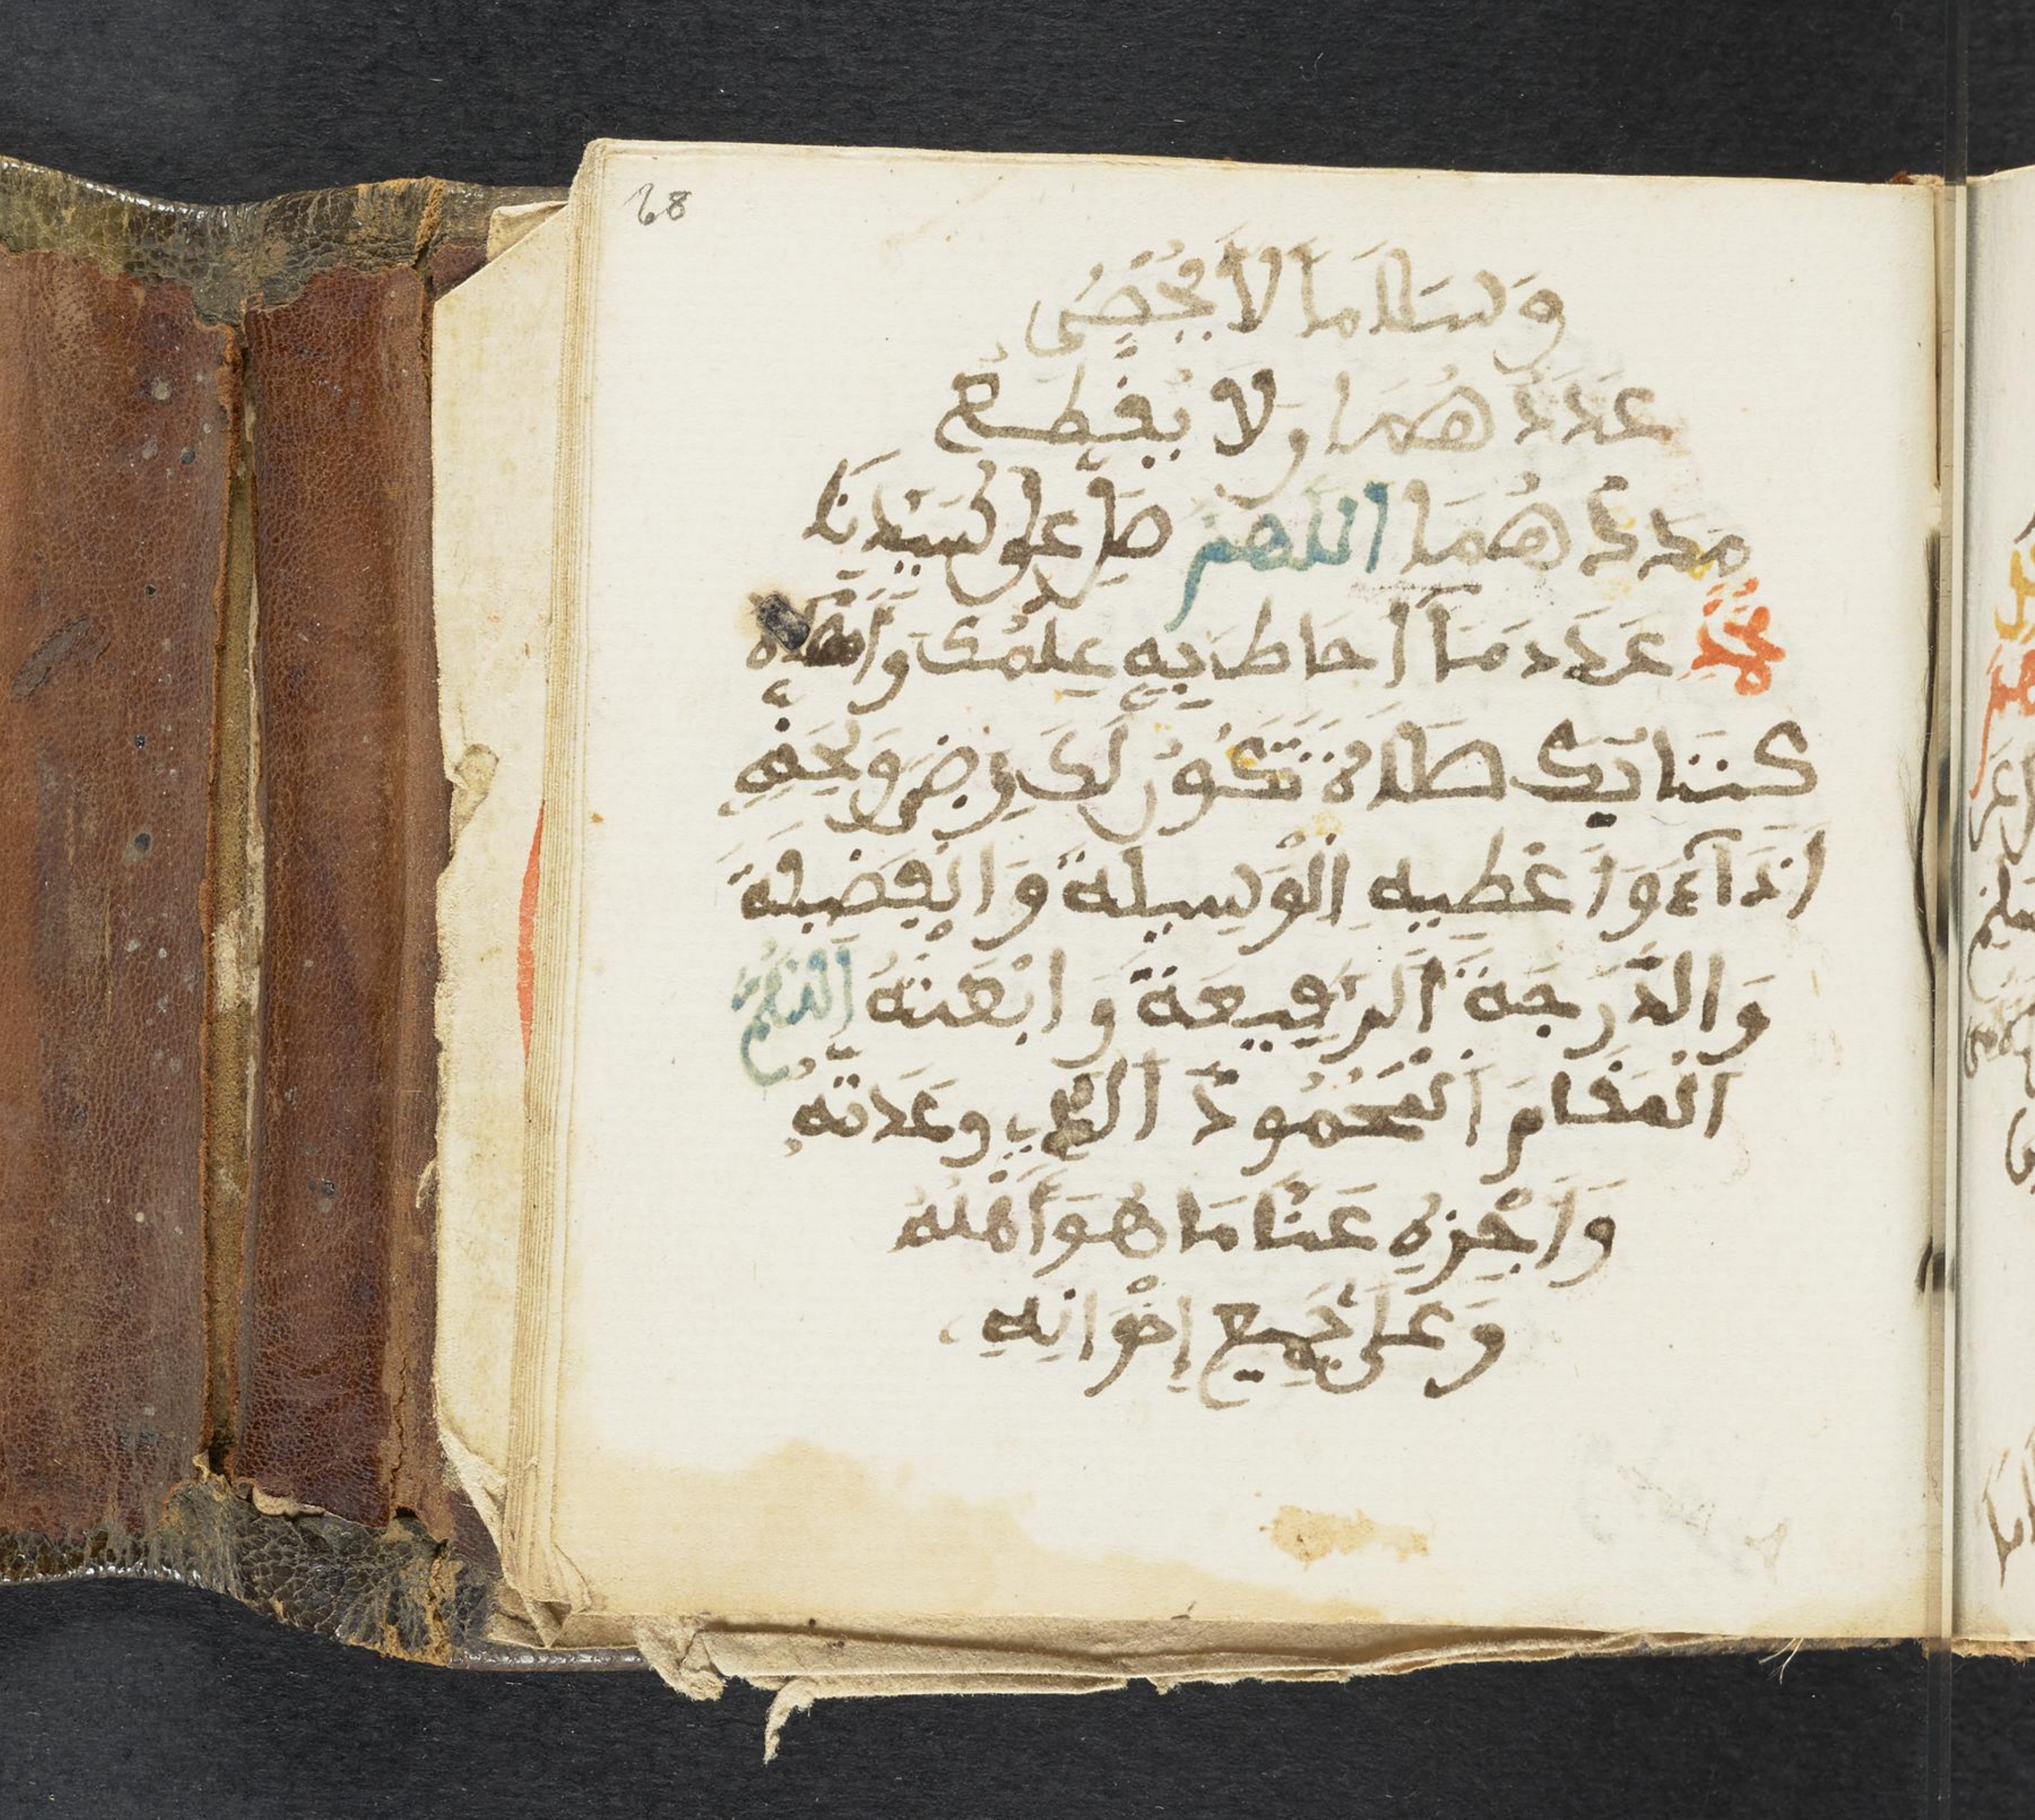 68
وَسَلَامًا لَا يُحْصَى
عَدَدُهُمَا وَلَا يُقْطَعُ
مَدَدُهُمَا اللهم صَلِّ عَلَى سَيِّدِنَا
مُحَمَّدٍ عَدَدَ مَا أَحَاطَ بِهِ عِلْمُكَ وَأَحْصَاهُ
كِتَابُكَ صَلَاةً تَكُونُ لَكَ رِضًى وَلِحَقِّهِ
أَدَآءً وَأَعْطِيهِ الْوَسِيلَةَ وَالْفَضِيلَةَ
وَالدَّرَجَةَ الرَّفِيعَةَ وَابْعَثْهُ اللَّهُمَّ
الْمَقَامَ الْمَحْمُودَ الذي وعَدتَّهُ
وَاَجْزِهِ عَنَّا مَا هُوَ أَهْلُهُ
وَعَلَى جَمِيعِ إِخْوَانِهِ